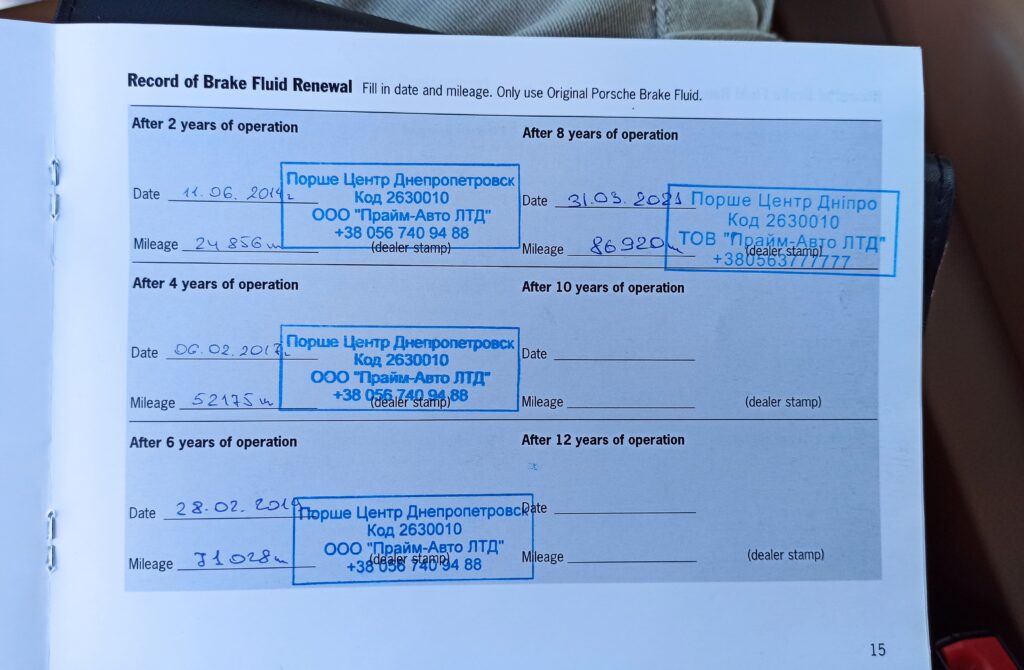 Record of Brake Fluid Renewal Fill in date and mileage. Only use Original Porsche Brake Fluid.
After 2 years of operation
Date 11.06.2014г
Mileage 24 856
Порше Центр Днепропетровск
Код 2630010
ООО "Прайм-Авто ЛТД"
+38 056 740 94 88
(dealer stamp)
After 4 years of operation
Date 06.02.2017г
Mileage 52175
Порше Центр Днепропетровск
Код 2630010
ООО "Прайм-Авто ЛТД"
+38 056 740 94 88
(dealer stamp)
After 6 years of operation
Date 28.02.2019
Mileage 71028
Порше Центр Днепропетровск
Код 2630010
ООО "Прайм-Авто ЛТД"
+38 056 740 94 88
(dealer stamp)
After 8 years of operation
Date 31.03.2021
Mileage 86920
Порше Центр Дніпро
Код 2630010
ТОВ "Прайм-Авто ЛТД"
+380563777777
(dealer stamp)
After 10 years of operation
Date
Mileage (dealer stamp)
After 12 years of operation
Date
Mileage (dealer stamp)
15